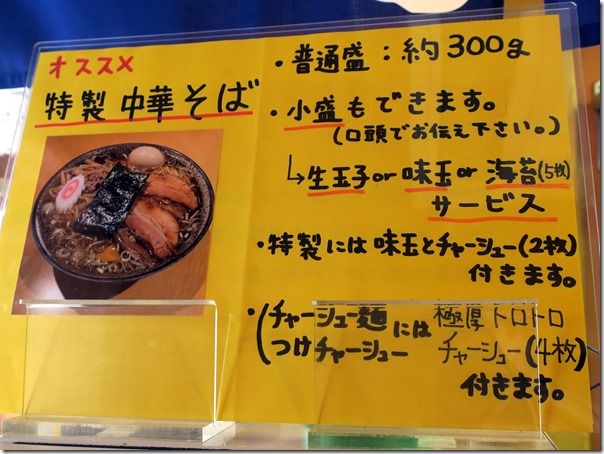 オススメ
特製 中華そば
・普通盛：約300g
・小盛もできます。
(口頭でお伝え下さい。)
↳生玉子or味玉or海苔(5枚)
サービス
・特製には味玉とチャーシュー(2枚)
付きます。
・(チャーシュー麺
つけチャーシュー
には
極厚トロトロ
チャーシュー(4枚)
付きます。